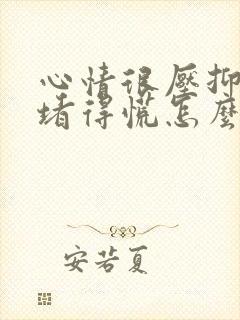 心情很壓抑
堵得慌怎麼
安若夏